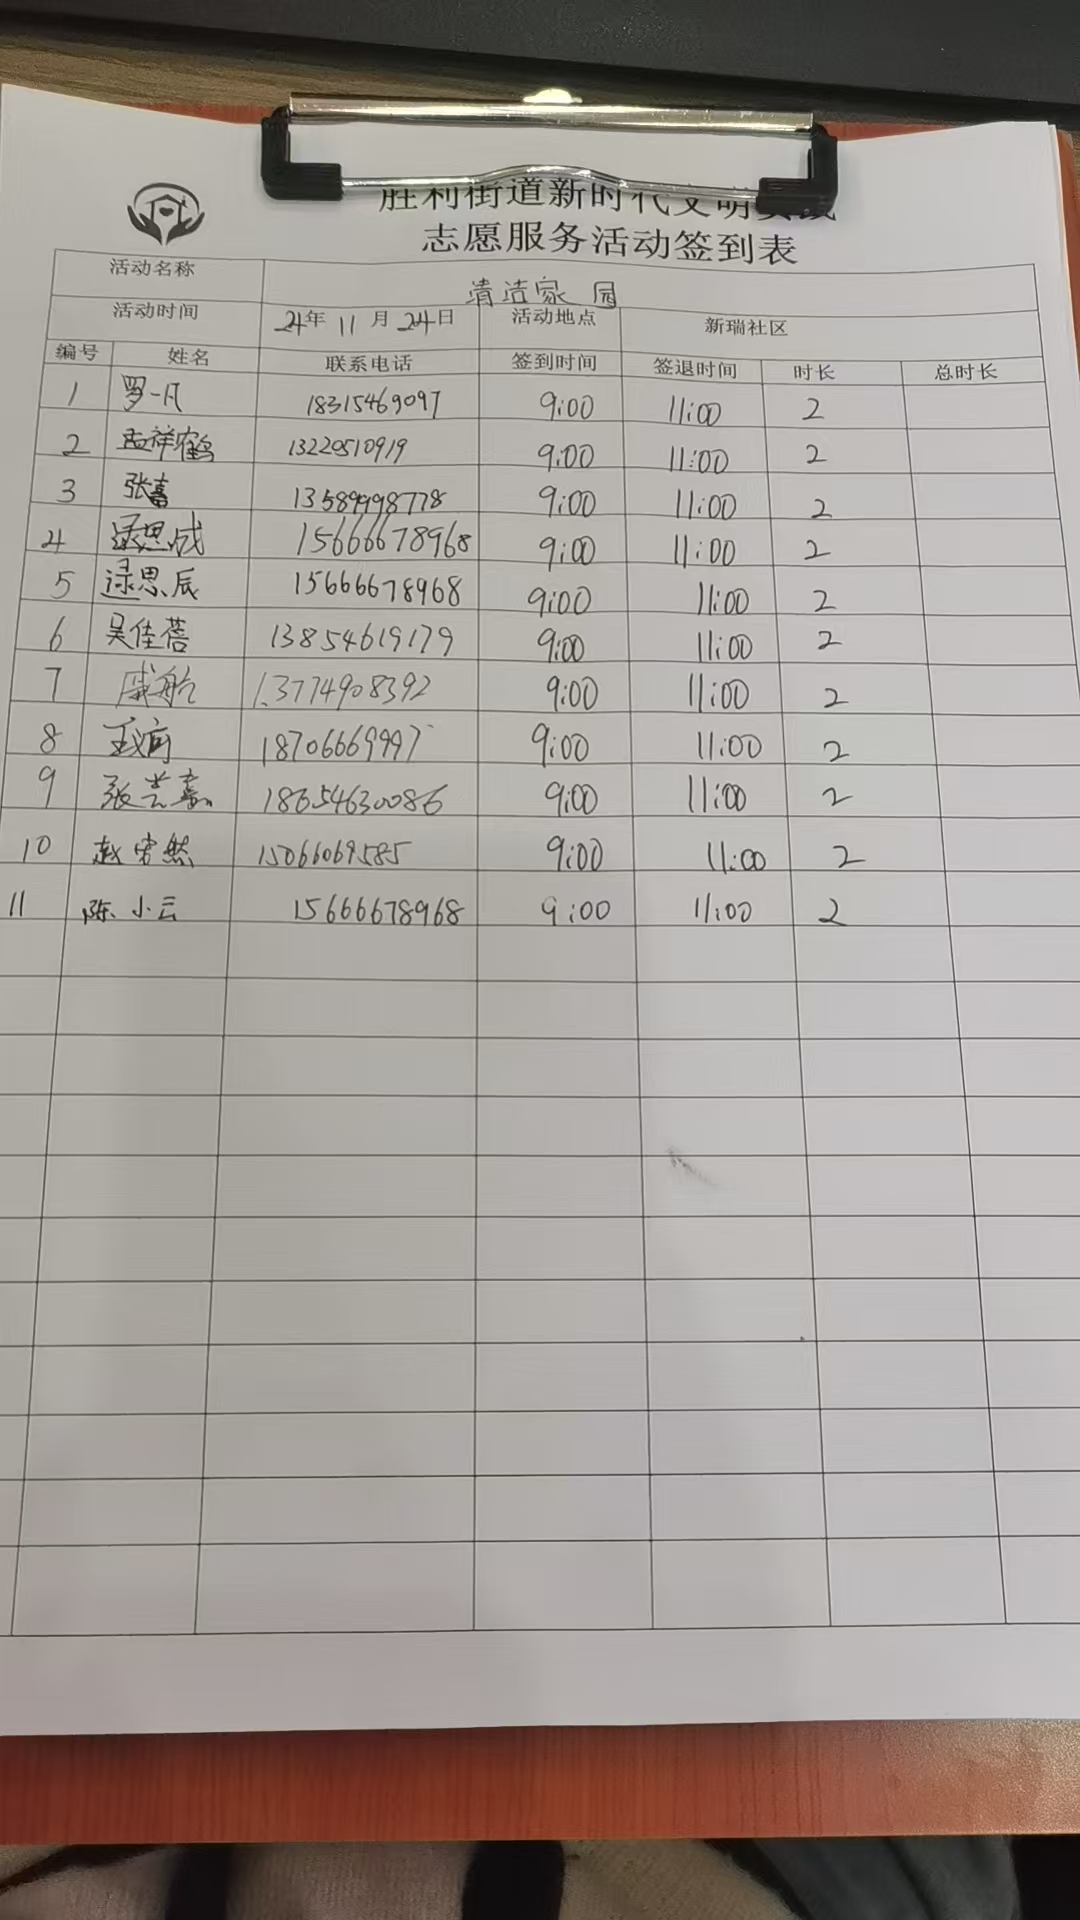 胜利街道新时代文明实践
志愿服务活动签到表
活动名称 清洁家园
活动时间 24年 11月 24日 活动地点 新瑞社区
编号 姓名 联系电话 签到时间 签退时间 时长 总时长
1 罗一凡 18315469097 9:00 11:00 2
2 孟祥鹤 13220510919 9:00 11:00 2
3 张喜 13589998778 9:00 11:00 2
4 逯思成 15666678968 9:00 11:00 2
5 逯思辰 15666678968 9:00 11:00 2
6 吴佳蓓 13854619179 9:00 11:00 2
7 戚航 13774908392 9:00 11:00 2
8 18706669997 9:00 11:00 2
9 张芸嘉 18654630086 9:00 11:00 2
10 赵安然 15066069585 9:00 11:00 2
11 陈小云 15666678968 9:00 11:00 2